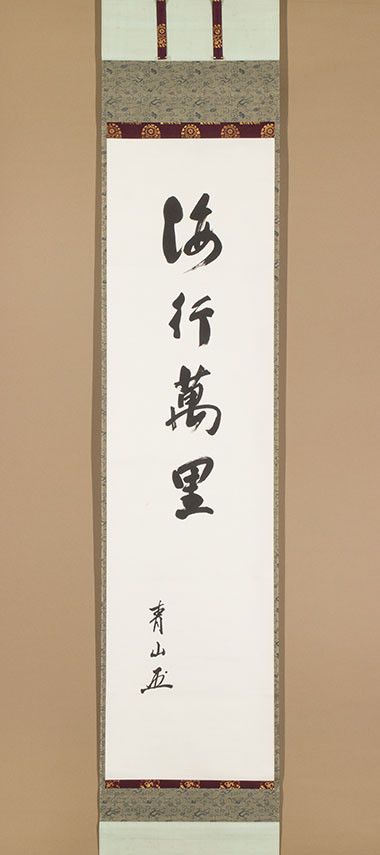 海行萬里
青山